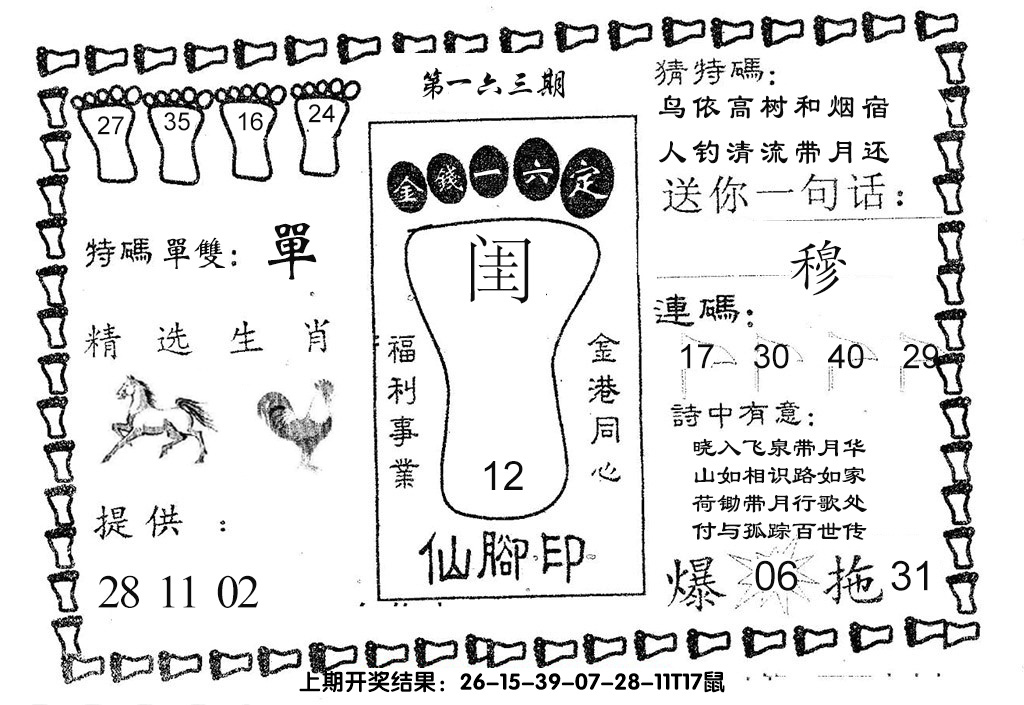 第一六三期
27 35 16 24
特碼單雙：單
精选生肖
提供：
28 11 02
金錢一六定
闺
福利事業
金港同心
12
仙腳印
猜特碼：
鸟依高树和烟宿
人钓清流带月还
送你一句话：
穆
連碼：
17 30 40 29
詩中有意：
晓入飞泉带月华
山如相识路如家
荷锄带月行歌处
付与孤踪百世传
爆 06 拖 31
上期开奖结果：26-15-39-07-28-11T17鼠